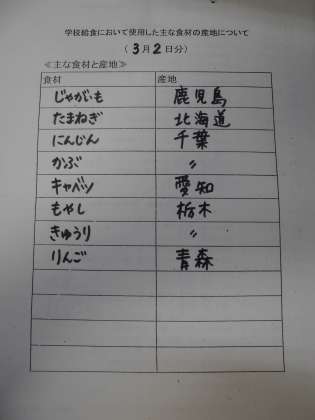 学校給食において使用した主な食材の産地について
(3月2日分)
≪主な食材と産地≫
食材 産地
じゃがいも 鹿児島
たまねぎ 北海道
にんじん 千葉
かぶ 〃
キャベツ 愛知
もやし 栃木
きゅうり 〃
りんご 青森